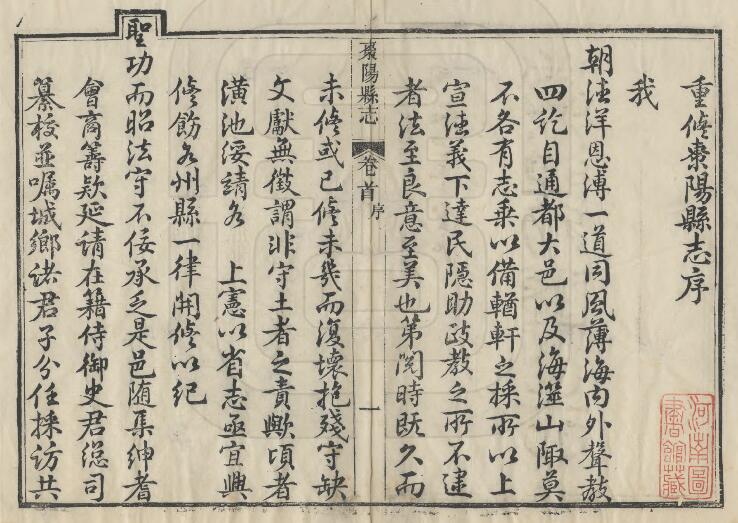 重修棗陽縣志序
我
朝法洋恩溥一道同風薄海內外聲教
四訖自通都大邑以及海澨山陬莫
不各有志乘以備輶軒之採所以上
宣法義下達民隱助政教之所不逮
者法至良意至美也第閱時既久而
棗陽縣志
卷首
序
一
未修或已修未幾而復壞抱殘守缺
文獻無徵謂非守土者之責歟頃者
潢池綏靖各 上憲以省志亟宜興
修飭各州縣一律開修以紀
聖功而昭法守不佞承乏是邑随集紳耆
會商籌欵延請在籍侍御史君總司
纂校並嘱城鄉諸君子分任採訪共
河南圖
書館藏